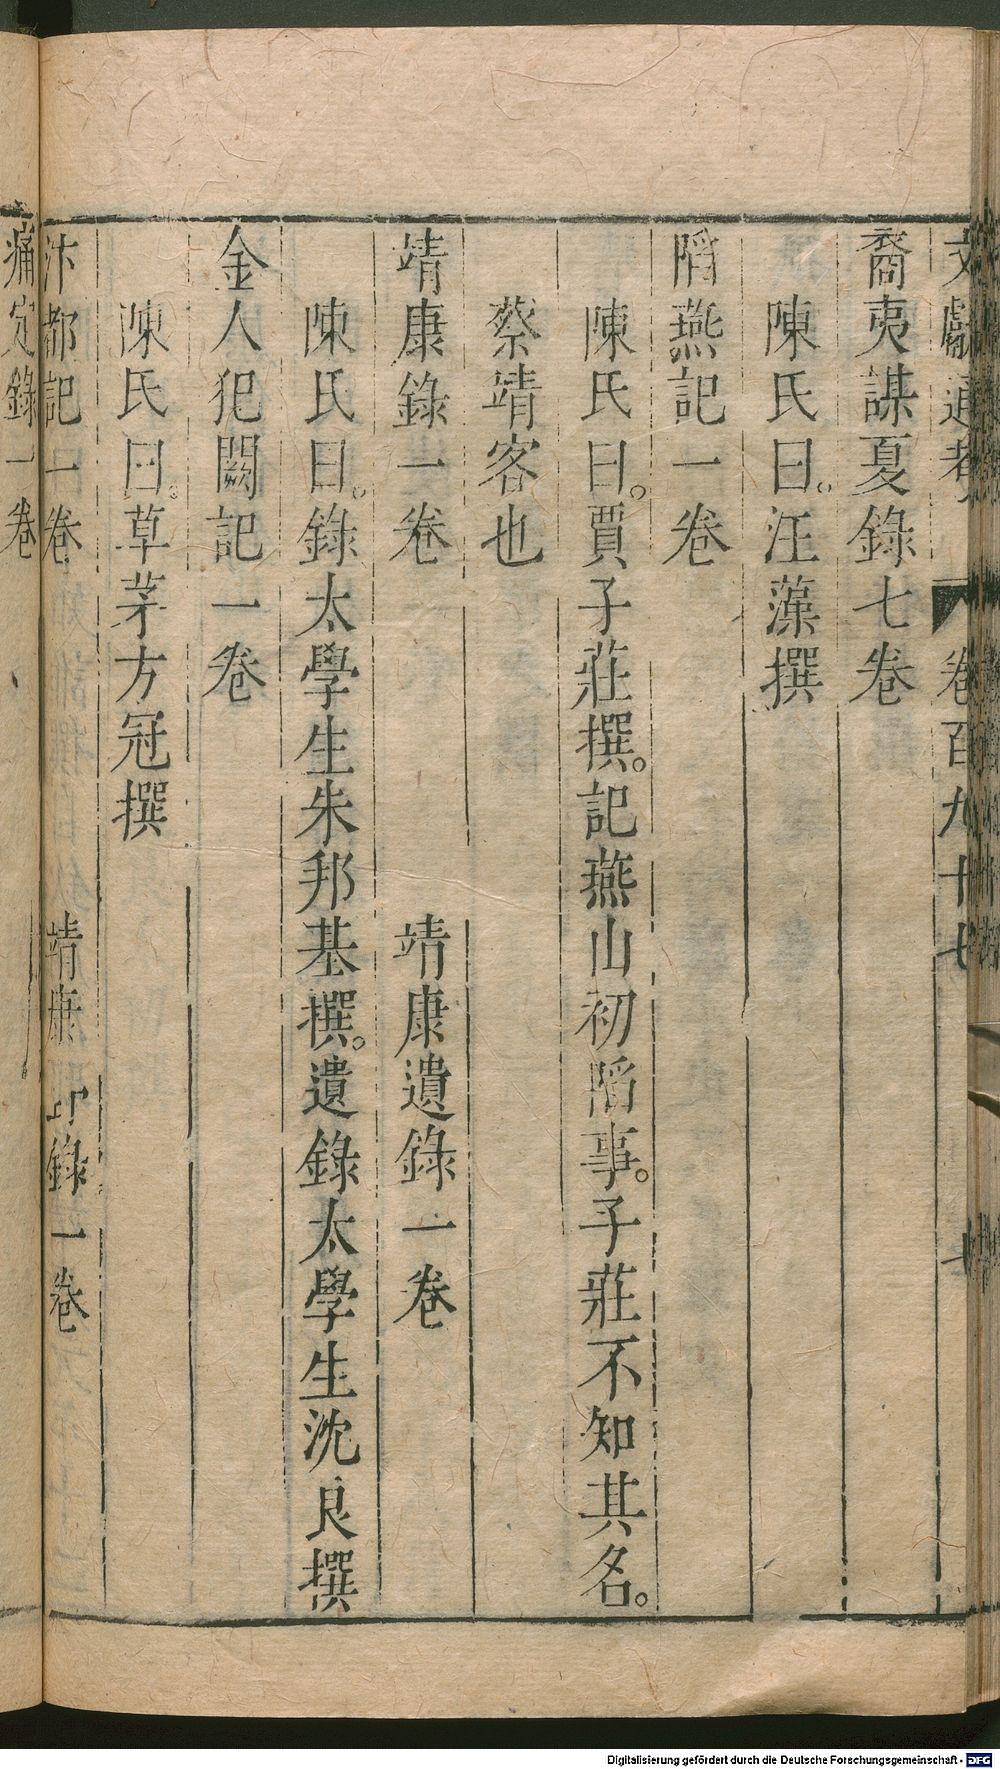 文獻通考 卷百九十七
裔夷謀夏錄七卷
陳氏曰。汪藻撰
陷燕記一卷
陳氏曰。賈子莊撰。記燕山初陷事。子莊不知其名。
蔡靖客也
靖康錄一卷 靖康遺錄一卷
陳氏曰。錄太學生朱邦基撰。遺錄太學生沈良撰
金人犯闕記一卷
陳氏曰。草茅方冠撰
汴都記一卷 靖康 錄一卷
痛定錄一卷
Digitalisierung gefördert durch die Deutsche Forschungsgemeinschaft - DFG